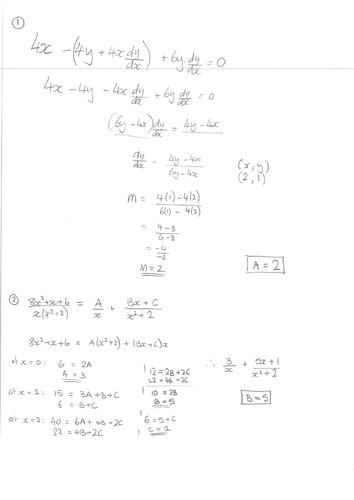 ①
4x - (4y + 4x dy/dx) + 6y dy/dx = 0
4x - 4y - 4x dy/dx + 6y dy/dx = 0
(6y - 4x) dy/dx = 4y - 4x
dy/dx = (4y - 4x)/(6y - 4x)
(x, y)
(2, 1)
m = (4(1) - 4(2))/(6(1) - 4(2))
= (4 - 8)/(6 - 8)
= -4/-2
M = 2
A = 2
② (8x² + x + 6)/(x(x² + 2)) = A/x + (Bx + C)/(x² + 2)
8x² + x + 6 = A(x² + 2) + (Bx + C)x
at x = 0: 6 = 2A
A = 3
at x = 1: 15 = 3A + B + C
6 = B + C
at x = 2: 40 = 6A + 4B + 2C
22 = 4B + 2C
12 = 2B + 2C
22 = 4B + 2C
10 = 2B
B = 5
6 = 5 + C
C = 1
∴ 3/x + (5x + 1)/(x² + 2)
B = 5